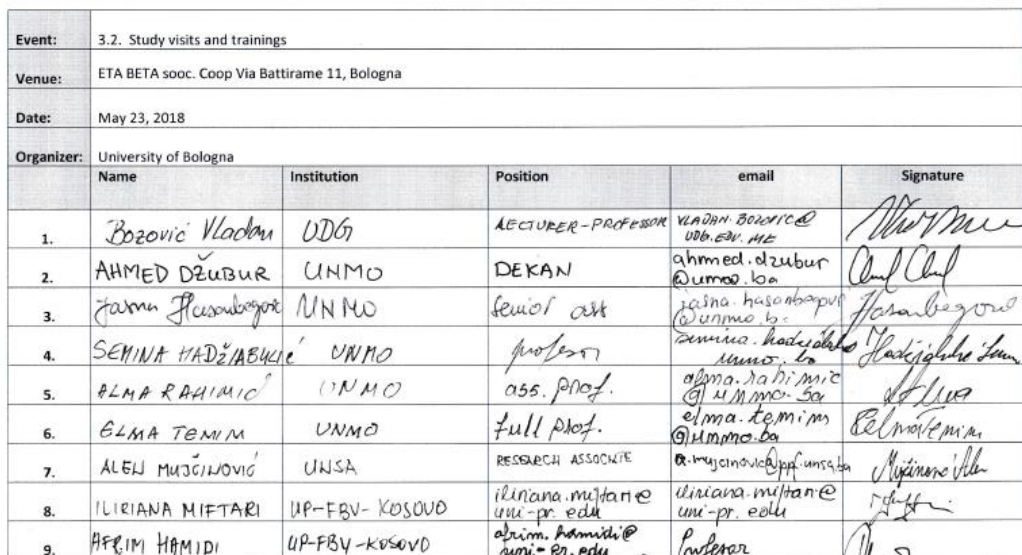 Event: 3.2. Study visits and trainings
Venue: ETA BETA sooc. Coop Via Battirame 11, Bologna
Date: May 23, 2018
Organizer: University of Bologna
Name Institution Position email Signature
1. Bozović Vladan UDG LECTURER-PROFESSOR VLADAN.BOZOVIC@
UDG.EDU.ME
2. AHMED DŽUBUR UNMO DEKAN ahmed.dzubur
@unmo.ba
3. Jasna Hasanbegović UNMO Senior asst jasna.hasanbegovic
@unmo.b. Hasanbegović
4. SEMINA HADŽIABULIĆ UNMO profesor
unmo.ba
5. ALMA RAHIMIĆ UNMO ass. prof. alma.rahimic
@unmo.ba
6. ELMA TEMIM UNMO full prof. elma.temim
@unmo.ba Elma Temim
7. ALEN MUJČINOVIĆ UNSA RESEARCH ASSOCIATE a.mujcinovic@ppf.unsa.ba Mujčinović Alen
8. ILIRIANA MIFTARI UP-FBV-KOSOVO iliriana.miftari@
uni-pr.edu iliriana.miftari@
uni-pr.edu
9. AFRIM HAMIDI UP-FBV-KOSOVO afrim.hamidi@
uni-pr.edu Profesor